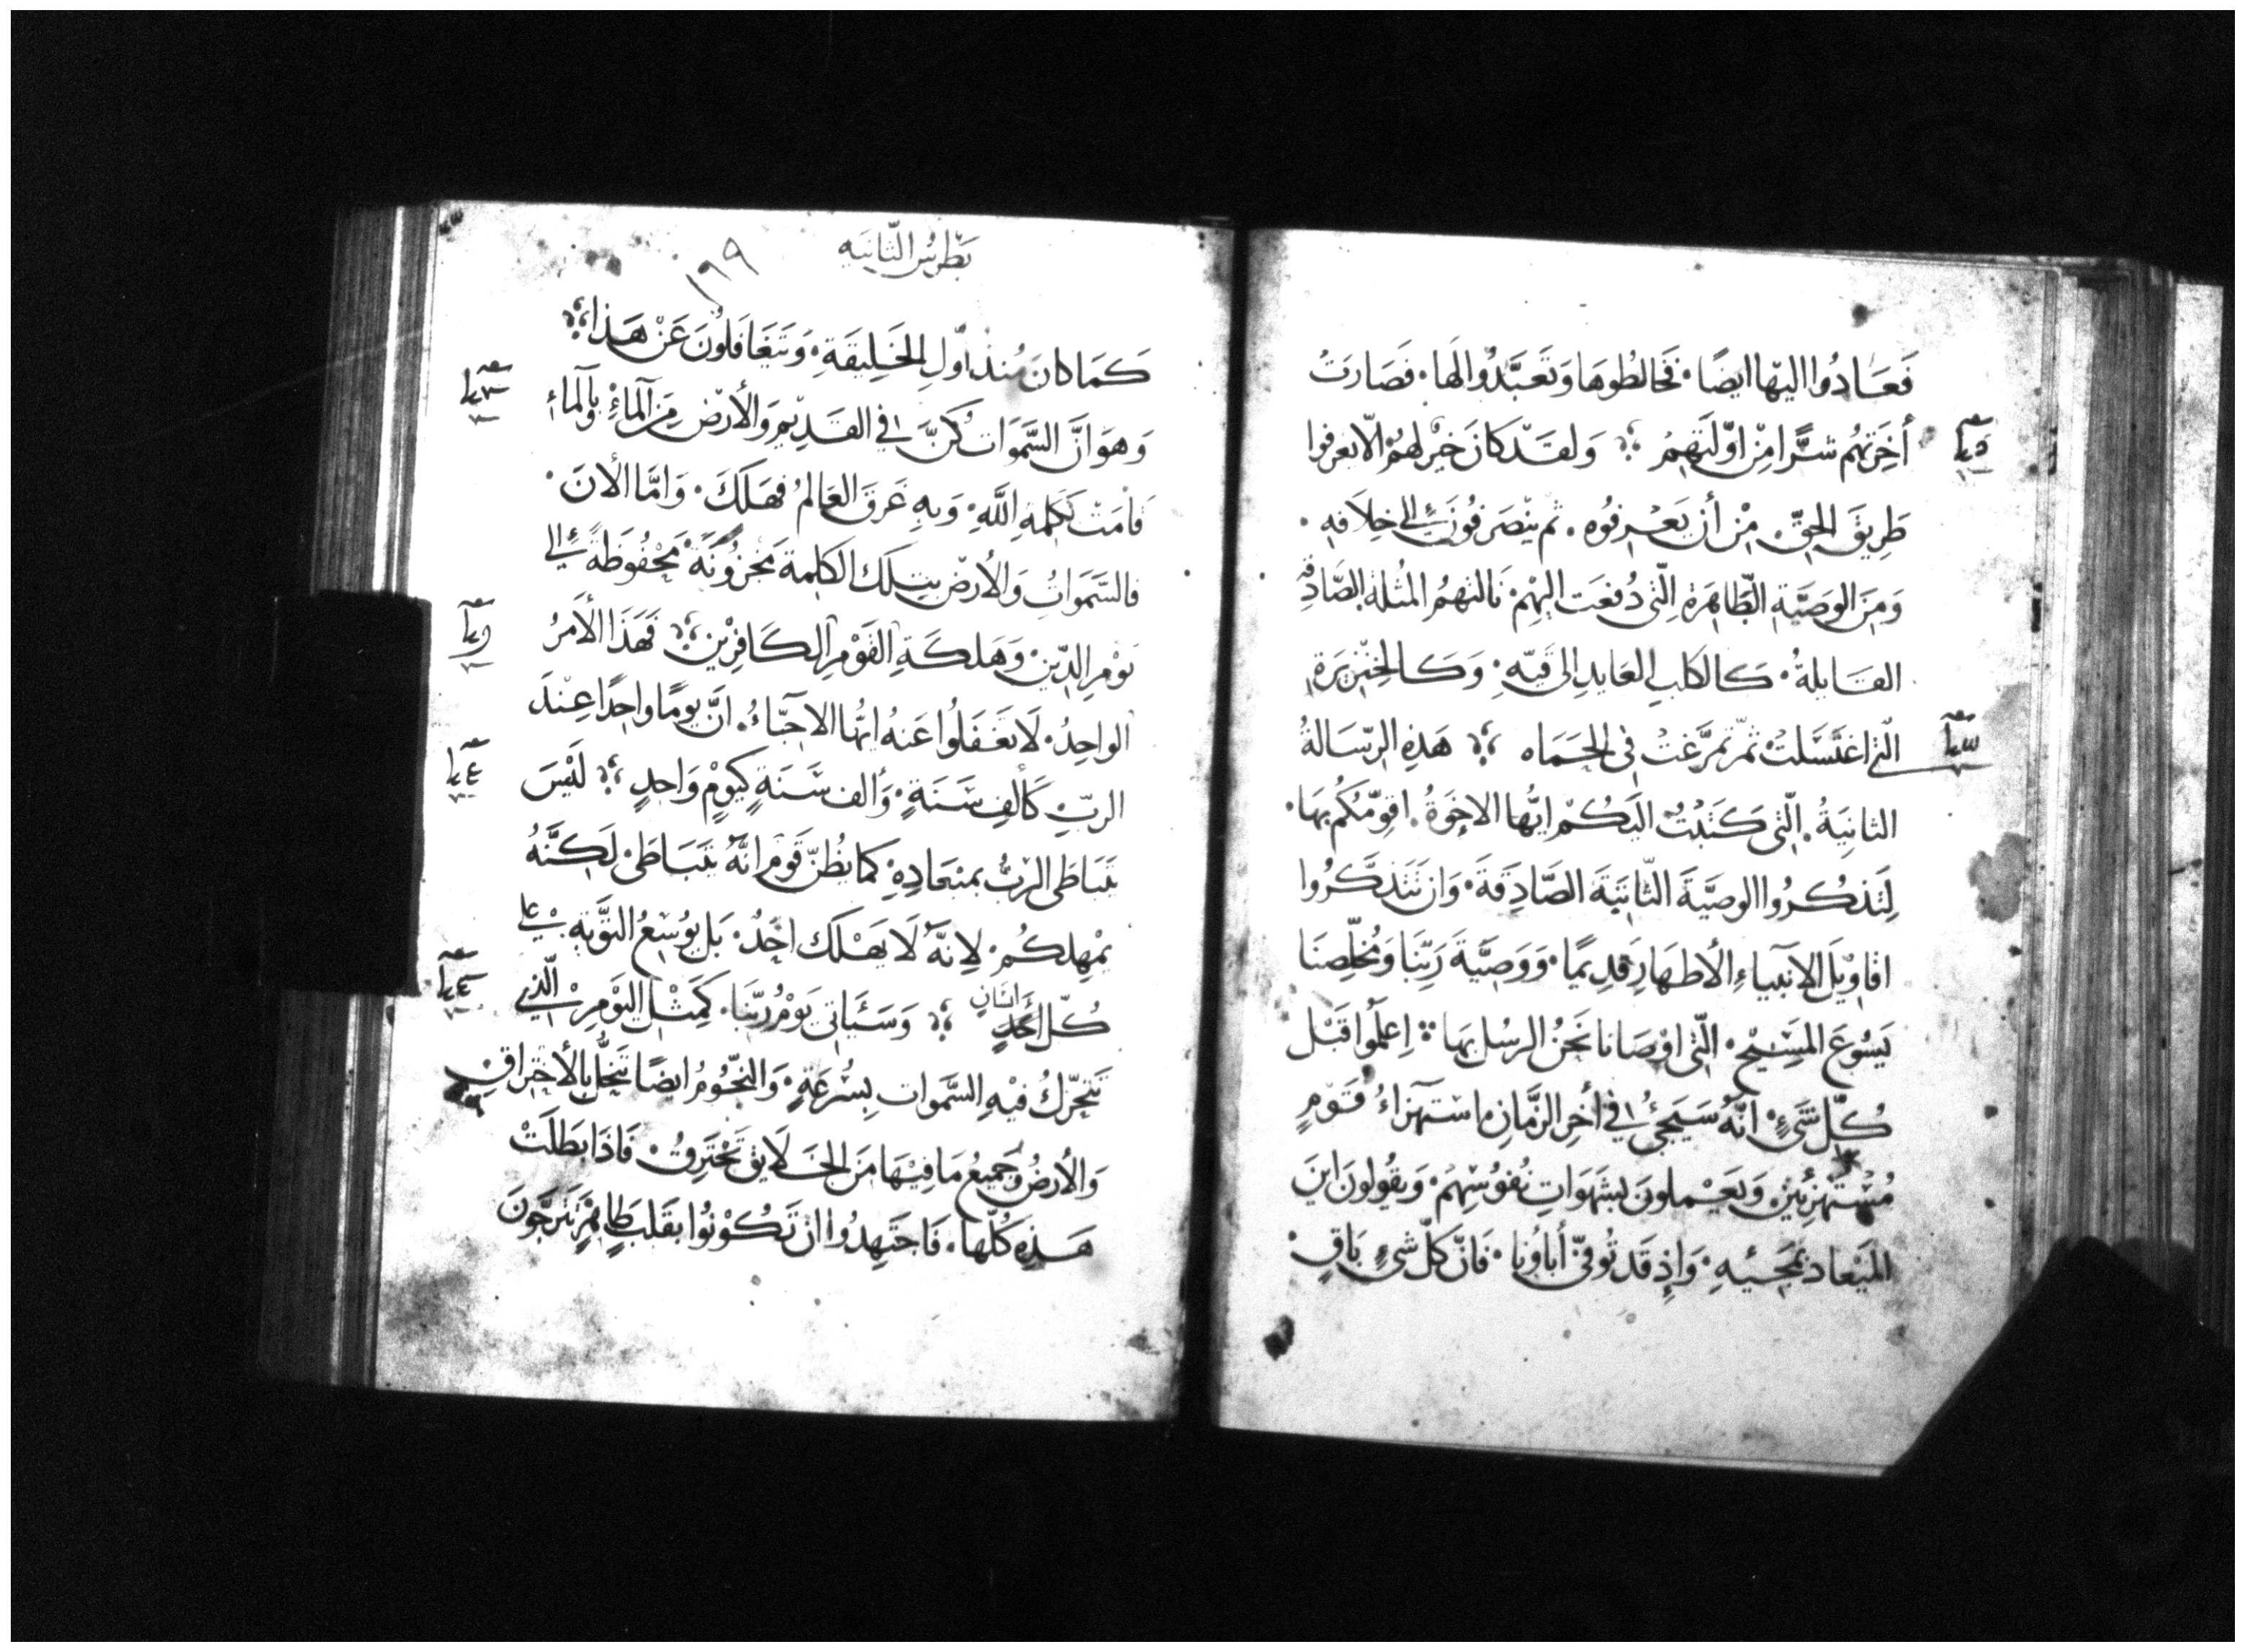 فَعَادُوا اليهَا ايضًا. فَخَالطُوهَا وَتَعَبَّدُوا لَهَا. فَصَارَتْ
أخِرَتهُم شرًّا مِنْ اوّلَتِهِمْ ۞ وَلقَدْ كانَ خَيْر لهُمْ الّا يعرفوا
طَرِيقَ الحَقّ. مِنْ أن يَعْرِفوُه. ثم ينْصَرفوُنَ إلى خِلَافهِ.
وَمِنَ الوصَيَّةِ الطَّاهِرَة الّتى دُفعَت اليْهِمْ. نَالتهُمُ المثُلة الصَّادِقه
القَايلةُ. كَالكلبِ العَايدِ الى قَيّهِ. وَكَالخِنْزيرَةِ
الّتى اغتَسَلتْ ثمّ تمرَّغتْ فى الحَمَاه ۞ هَذِهِ الرسّالةُ
الثانِيَةُ. الّتى كَتَبْتُ اليَكُمْ ايُّها الاخِوَةُ. اقوّمُكُم بهَا.
لِتَذكُرُوا الوصيَّةَ الثّانيَةَ الصَّادِقةَ. وَان تَتَذكَّرُوا
اقاوْيلَ الانبيَاءِ الأطهَارِ قَدِيمًا. وَوَصيَّةَ رَبِّنَا وَمُخلِّصِنَا
يَسُوعَ المَسِيْحِ. الّتى اوْصَانا نَحنُ الرسُل بهَا ۞ اِعلَمُوا قَبْل
كُلّ شَىْءٍ. انّهُ سَيَجئُ فى أخِرِ الزَّمَانِ. اسْتهزاءُ قَوْمٍ
مُسْتهْزِئينَ. وَيَعْملونَ بشَهَوَاتِ نُفوُسِهِمْ. وَيقُولونَ اينَ
الميْعاد بمَجيْئهِ. وَاِذ قَد تُوفىّ أباوُنا. فَانّ كلّ شىءٍ بَاقٍ
بَطْرسُ الثّانيَه
١٩٩
كَمَا كانَ مُنذ اوّلِ الخَلِيقَةِ. وَتَتَغَافَلُونَ عَنْ هَذا ۞
وَهوَ انَّ السَّمَوَات كُنَّ فى القَدِيْمِ وَالأرْض مِنَ آلماءِ وَبآلماءِ
قامَتْ بَكلمةِ اللَّهِ. وَبهِ غَرقَ العَالمُ فهَلَكَ. وَامّا الأنَ.
فالسَّمَوَاتُ وَالأرْضُ بتِلكَ الكلِمة مَخْزُونَةً. مَحْفُوَظةً إلى
يَوْمِ الدِّين. وَهَلكَةِ القَوْمِ الكَافِرْين ۞ فَهَذَا الأمرُ
الواحِدُ. لَا تغفَلُوا عَنهُ ايُّها الاحِبّاءُ. انَّ يومًا واحِدًا عِنْدَ
الربّ كَألفِ سَنَةٍ. وَألفَ سَنَةٍ كَيوْمٍ وَاحِدٍ ۞ لَيْسَ
يَتَبَاطَى الربُّ بمنعَادِهِ. كما يظُنّ قَوْم انّهُ يَتَبَاطَى. لَكِنَّهُ
يمْهِلكُم. لاِنّهُ لَا يَهْلَك احَدٌ. بَل يوُسِعُ التوَّبَةِ على
كُلّ أحَدٍ انسَانٍ ۞ وَسَيَأتى يَوْمُ رَبّنَا. كَمِثْلِ اليَوْمِ الّذى
تَتَحَرّكُ فيْهِ السَّموات بِسُرعَةٍ. وَالنجُومُ ايضًا تَنْحَلُّ بالأحترَاقِ
وَالأرضُ وَجَميعُ مَا فِيْهَا مِنَ الخَلَايقِ تَحْتَرِقُ. فَاذَا بَطلَتْ
هَذِهِ كُلّها. فَاجتَهِدُوا ان تَكُوْنُوا بقَلبٍ طَاهِرٍ تَترَجَّونَ